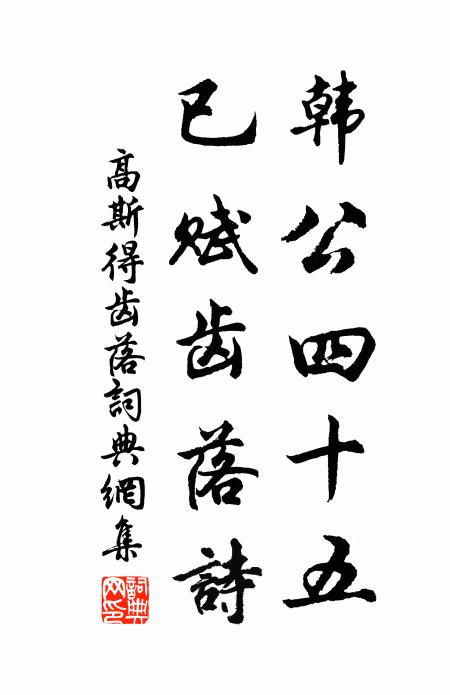 韩公四十五
已赋齿落詩
高斯得齿落詞典網集
詞典網印